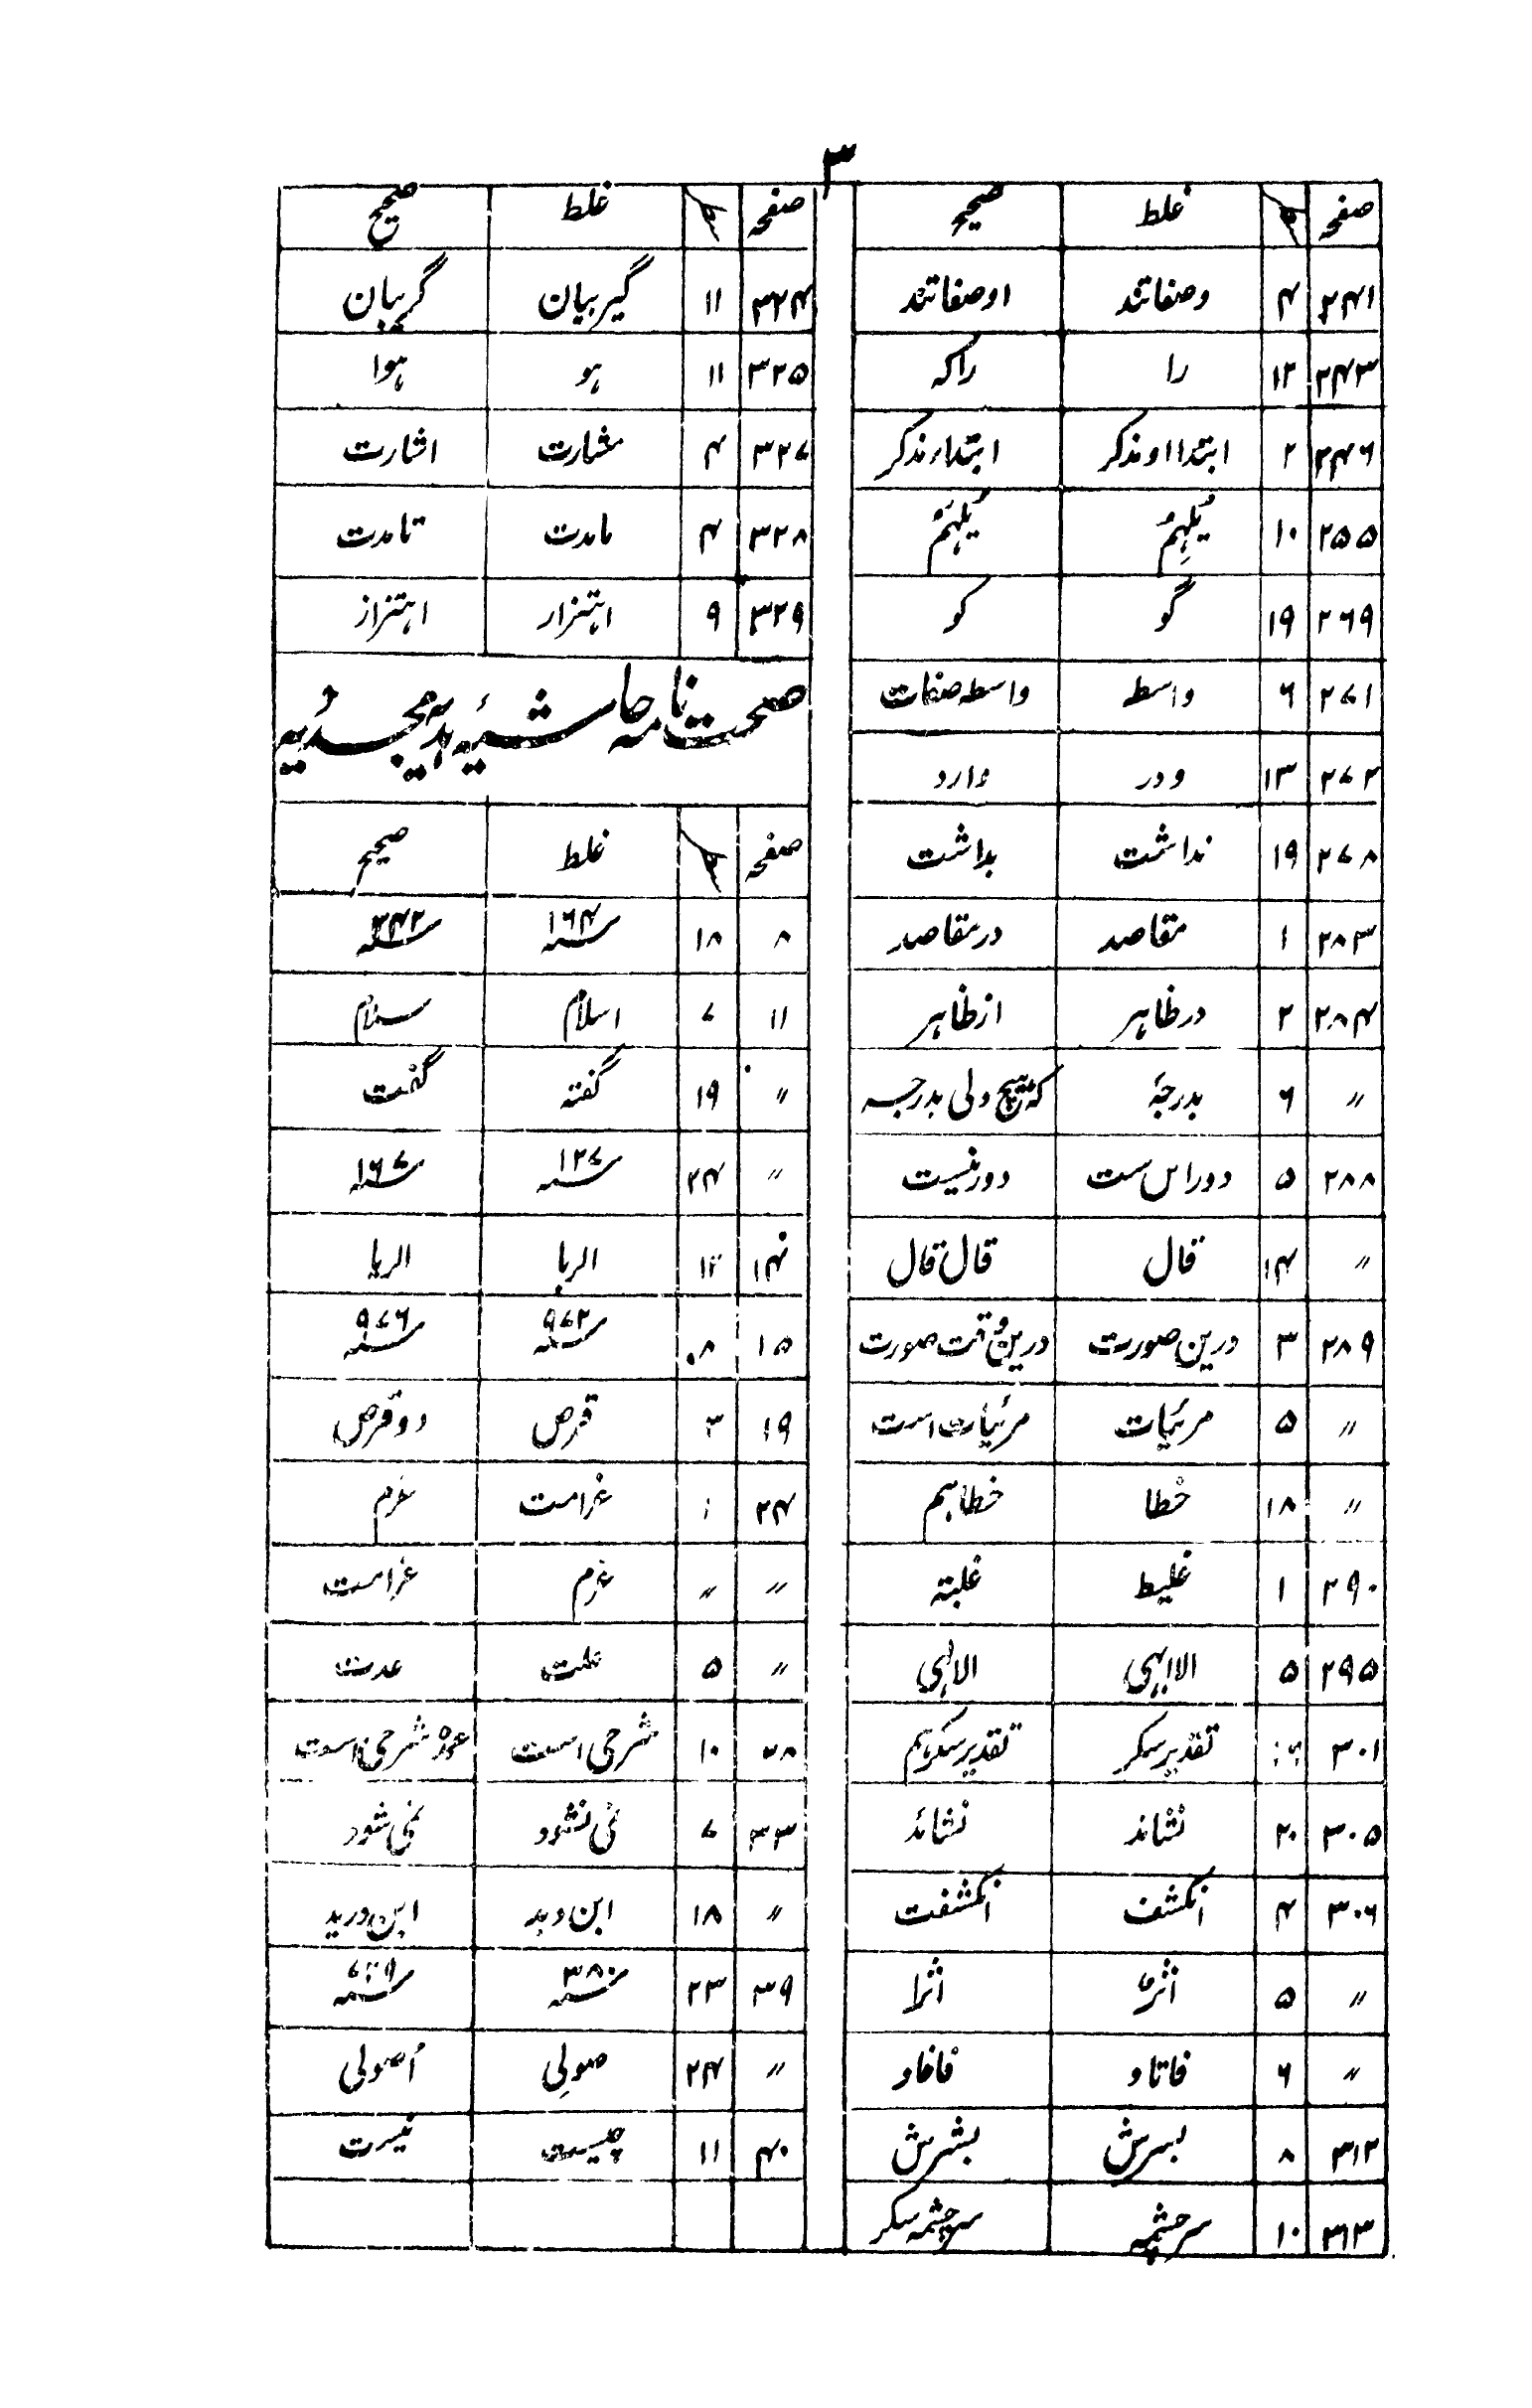 ۳
صفحہ سطر غلط صحیح
۲۴۱ ۴ وصفاتند اوصفاتند
۲۴۳ ۱۲ را راکہ
۲۴۶ ۲ ابتدا او مذکر ابتداء مذکر
۲۵۵ ۱۰ یُلہِمُ یُلہَمُ
۲۶۹ ۱۹ گو کو
۲۷۱ ۶ واسطہ واسطہ صفات
۲۷۲ ۱۳ ودر وارد
۲۷۸ ۱۹ نداشت بداشت
۲۸۳ ۱ مقاصد درمقاصد
۲۸۴ ۲ درظاہر ازظاہر
〃 ۶ بدرجۂ کہ ہیچ ولی بدرجہ
۲۸۸ ۵ دوراس ست دورنیست
〃 ۱۴ قال قال قال
۲۸۹ ۳ درین صورت درین وقت صورت
〃 ۵ مرئیات مرئیات است
〃 ۱۸ خطا خطاہم
۲۹۰ ۱ غلیط غلبتہ
۲۹۵ ۵ الاالہی الالہی
۳۰۱ تقدیر سکر تقدیر سکرہم
۳۰۵ ۲۰ نشاند نشائد
۳۰۶ ۴ انکشف انکشفت
〃 ۵ اثرً اثرا
〃 ۶ فاتاو فافاو
۳۱۲ ۸ بسرش بشرش
۳۱۳ ۱۰ سرچشمہ سرچشمہ سکر
صفحہ سطر غلط صحیح
۳۲۴ ۱۱ گیربیان گریبان
۳۲۵ ۱۱ ہو ہوا
۳۲۷ ۴ مشارت اشارت
۳۲۸ ۴ مامدت تامدت
۳۲۹ ۹ اہتزار اہتزاز
صحت نامہ حاشیۂ ہدیہ مجددیہ
صفحہ سطر غلط صحیح
۸ ۱۸ ۱۶۴سنہ ۲۴۲سنہ
۱۱ ۷ اسلام سلام
〃 ۱۹ گفتہ گفت
〃 ۲۴ ۱۲۷سنہ ۱۶۷سنہ
۱۴ ۱۲ الربا الریا
۱۵ ۸ ۹۷۲سنہ ۹۷۶سنہ
۱۹ ۳ قرص دوقرص
۲۴ ۱ غرامت غرم
〃 〃 غرم غرامت
〃 ۵ علت عدت
۲۸ ۱۰ شرحی است عمدہ شرحی است
۳۳ ۷ نمی نشود نمی شود
〃 ۱۸ ابن وید ابن درید
۳۹ ۲۳ ۳۸۰سنہ
〃 ۲۴ صولی اُصولی
۴۰ ۱۱ چیست نیست